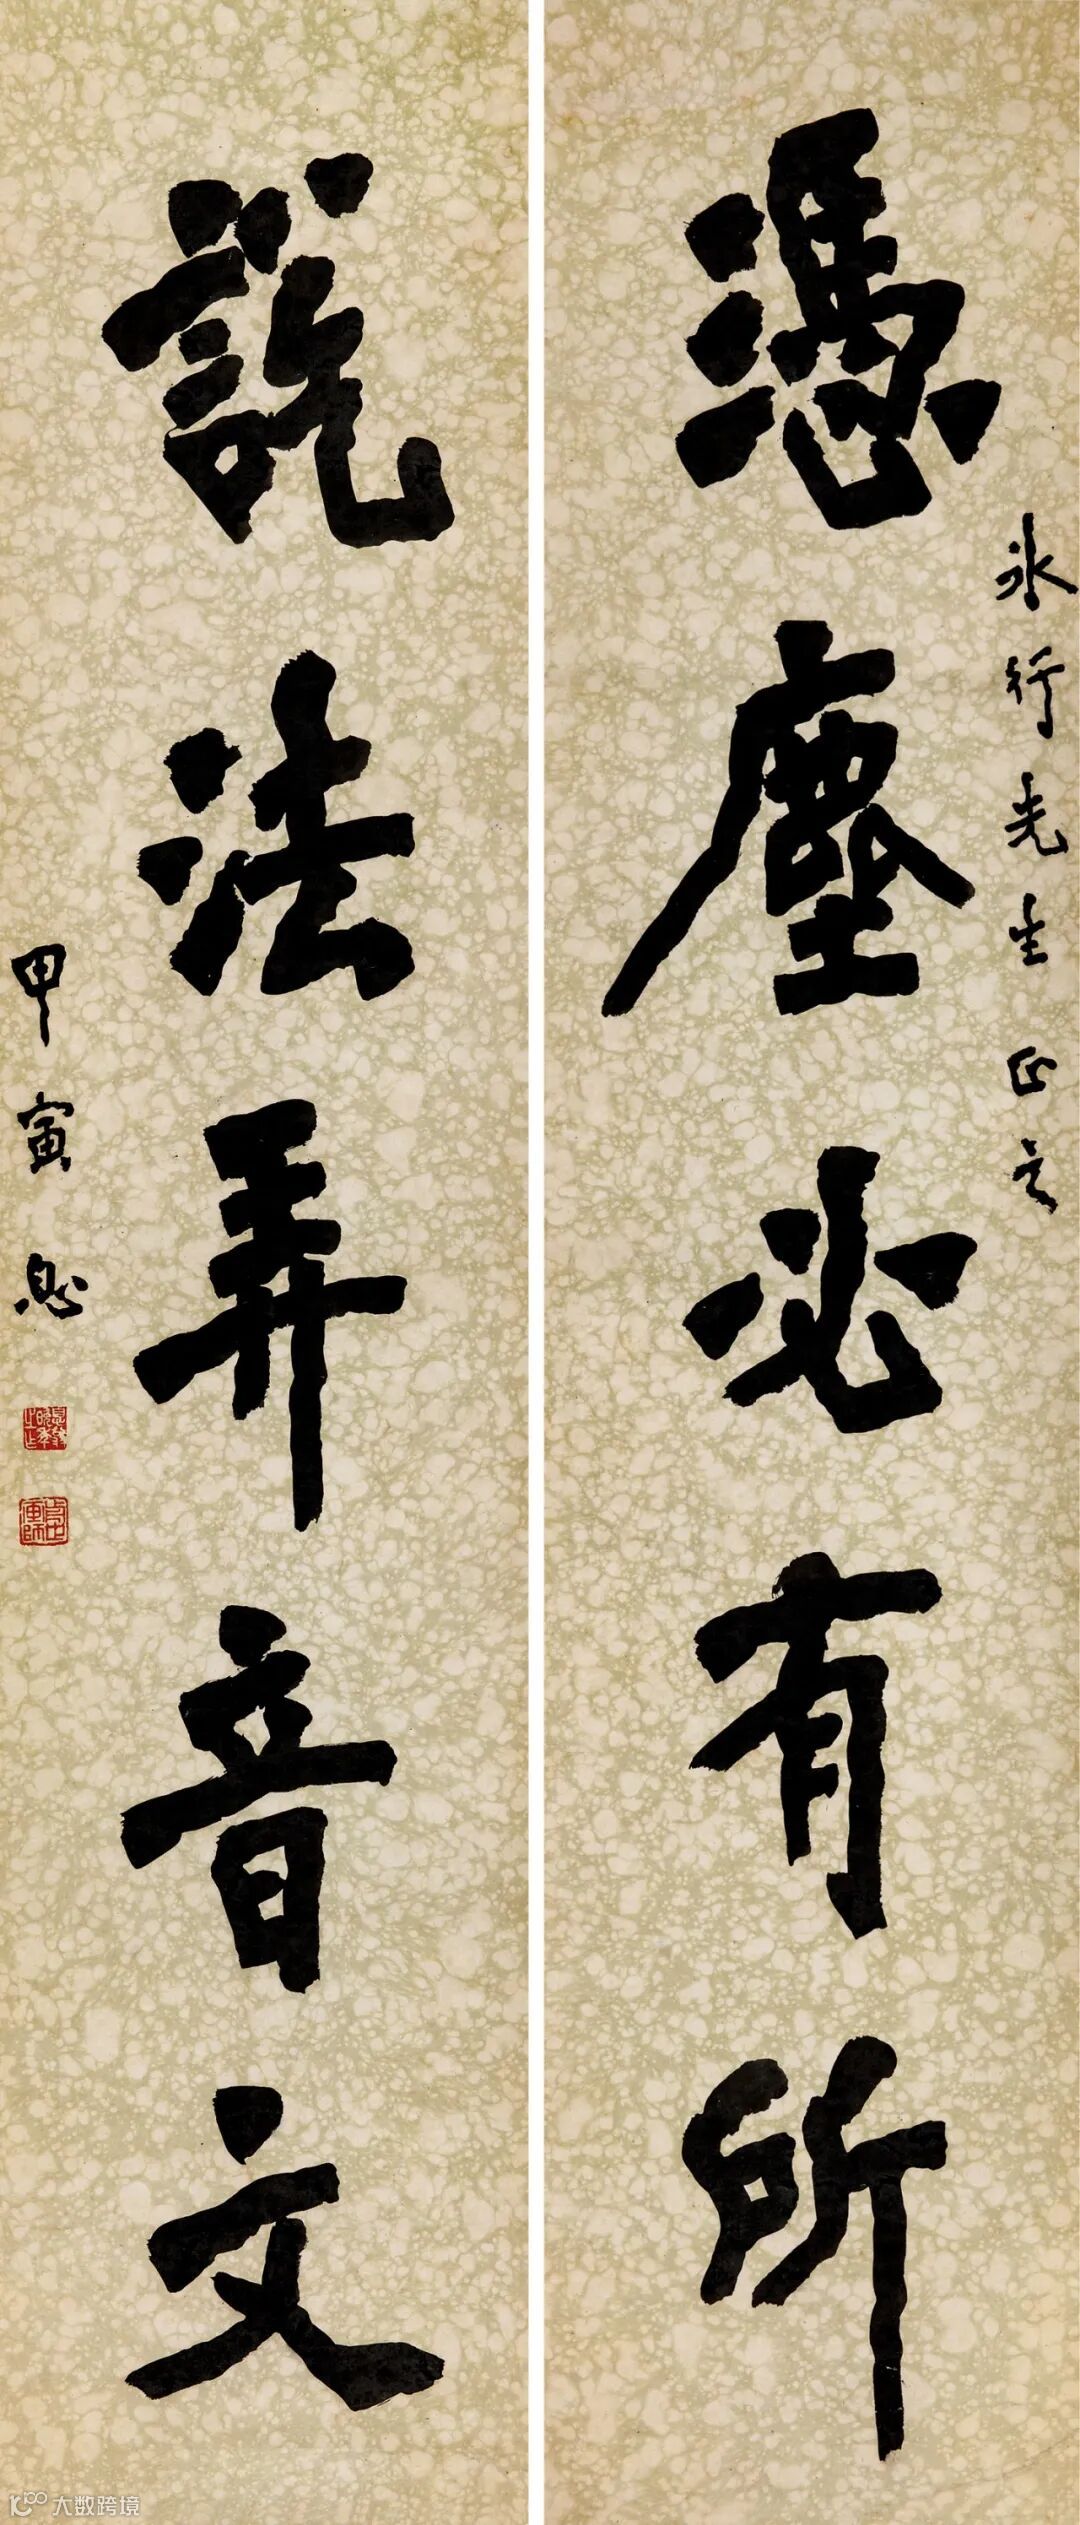 冰行先生正之
憑塵必有所
說法弄音文
甲寅 熙
大数跨境